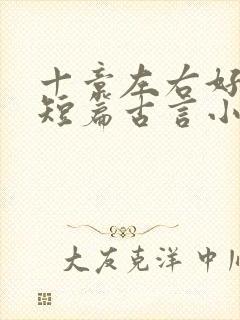 十章左右好
短篇古言小
大友克洋 中川